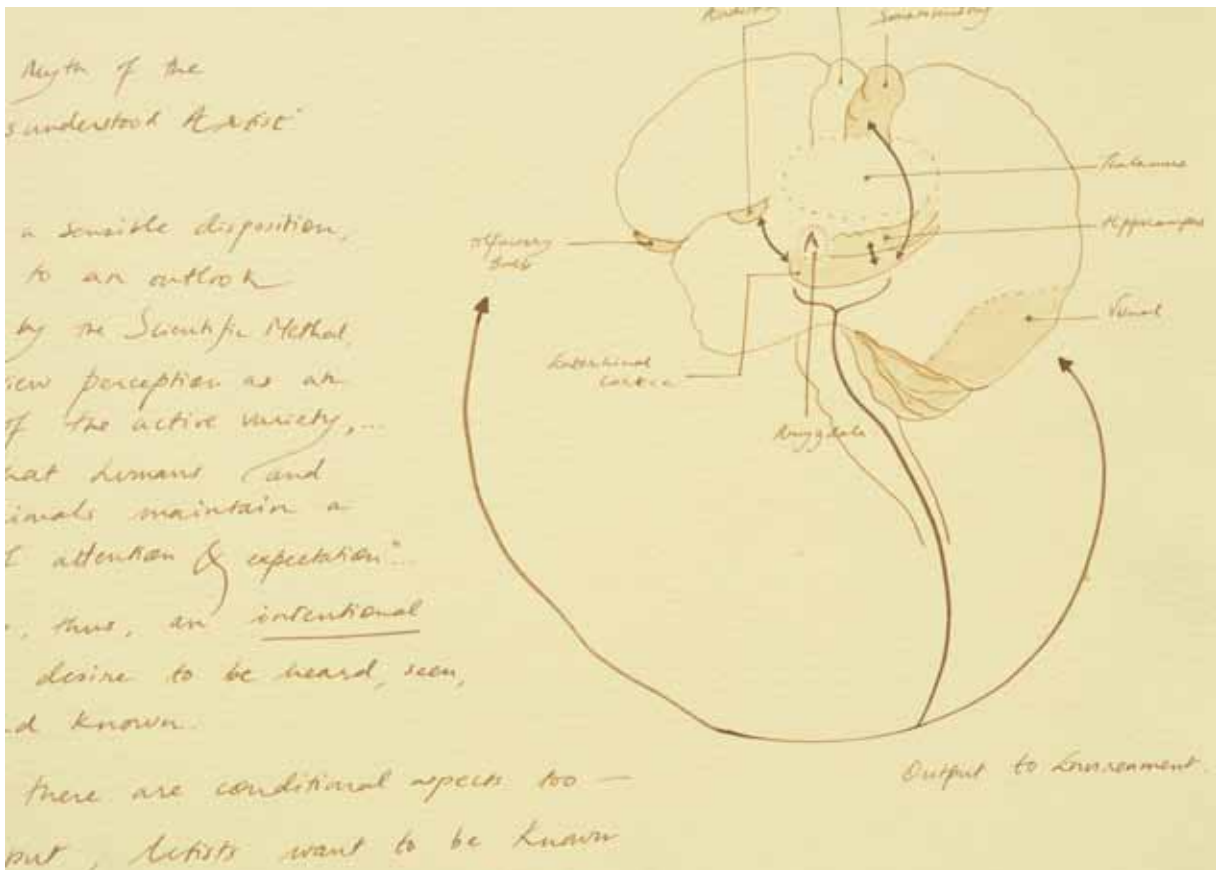 Myth of the
sunderstood Artist"
a sensible disposition,
to an outlook
by the Scientific Method,
iew perception as an
of the active variety,...
hat humans and
imals maintain a
attention & expectation"...
, thus, an intentional
desire to be heard, seen,
d known.
there are conditional aspects too —
put, Artists want to be known
Auditory
Somatosensory
Thalamus
Hippocampus
Olfactory
Bulb
Visual
Entorhinal
Cortex
Amygdala
Output to Environment.